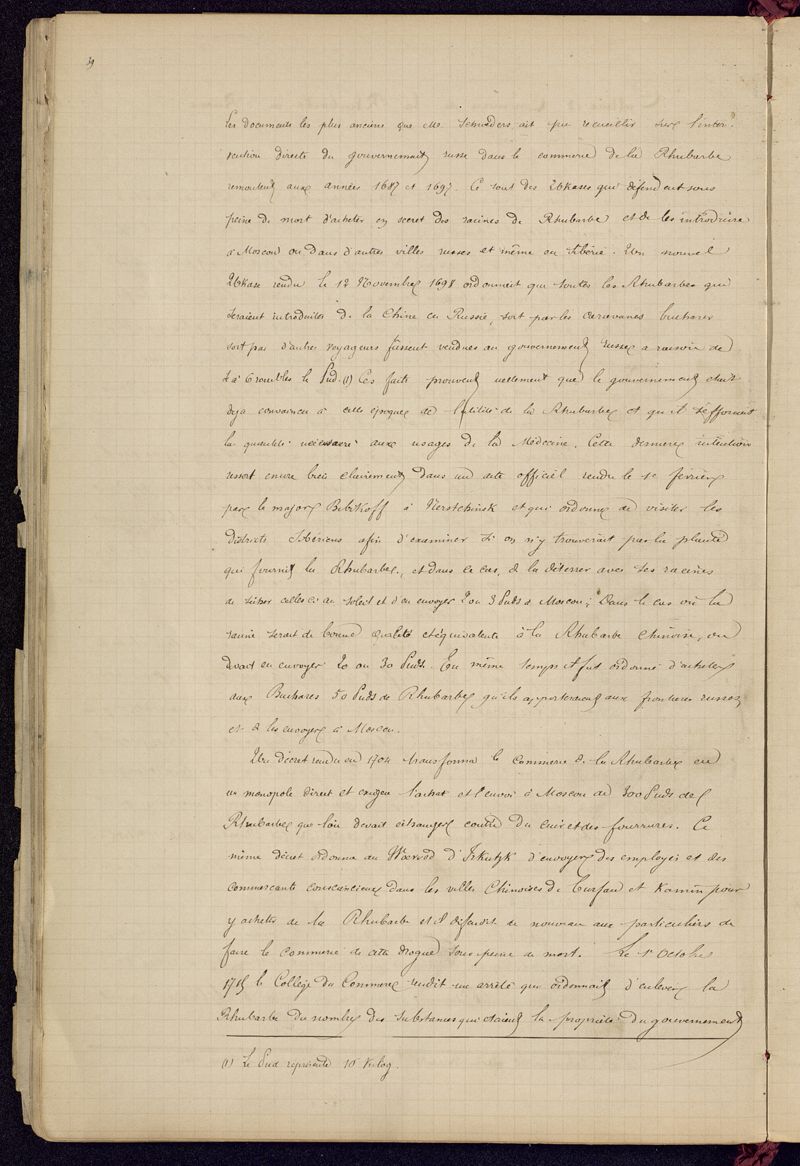 Les documents les plus anciens que Mr Schröders ait pu recueillir sur l'inter-
vention directe du gouvernement russe dans le commerce de la Rhubarbe
remontent aux années 1687 et 1697. Ce sont des Ukases qui défendent sous
peine de mort d'acheter en secret des racines de Rhubarbe et de les introduire
à Moscou ou dans d'autres villes russes et même en Sibérie. Un nouvel
Ukase rendu le 12 Novembre 1698 ordonnait que toutes les Rhubarbes qui
seraient introduites de la Chine en Russie, soit par les caravanes buchares
soit par d'autres voyageurs fussent vendues au gouvernement russe à raison de
à 6 roubles le Pud. (1) Ces faits prouvent nettement que le gouvernement était
déjà convaincu à cette époque de l'utilité de la Rhubarbe et qu'il
la quantité nécessaire aux usages de la Médecine. Cette dernière intention
ressort encore bien clairement dans un acte officiel rendu le 1er février
par le major Bibikoff à Nerstchinsk et qui ordonne de visiter les
districts Sibériens afin d'examiner si on n'y trouverait pas la plante
qui fournit la Rhubarbe, et dans ce cas, de la déterrer avec ses racines
de sécher celles ci au soleil et d'en envoyer 2 ou 3 Puds à Moscou; Dans le cas où la
racine serait de bonne qualité et équivalente à la Rhubarbe chinoise, on
devait en envoyer 20 ou 30 Puds. En même temps il fut ordonné d'acheter
aux Buchares 50 Puds de Rhubarbe qu'ils apporteraient aux frontières russes
et de les envoyer à Moscou.
Un décret rendu en 1704 transforma le commerce de la Rhubarbe en
un monopole direct et exigea l'achat et l'envoi à Moscou de 300 Puds de
Rhubarbe que l'on devait échanger contre du cuir et des fourrures. Ce
même décret ordonna au Woewod d'Irkutzk d'envoyer des employés et des
commerçants consciencieux dans les villes Chinoises de Turfan et Kamin pour
y acheter de la Rhubarbe et il défendit de nouveau aux particuliers de
faire le commerce de cette drogue sous peine de mort. Le 1er Octobre
le Collège du Commerce rendit un arrêté qui ordonnait d'enlever la
Rhubarbe du nombre des substances qui étaient la propriété du gouvernement
(1) Le Pud représente 16 Kilog.